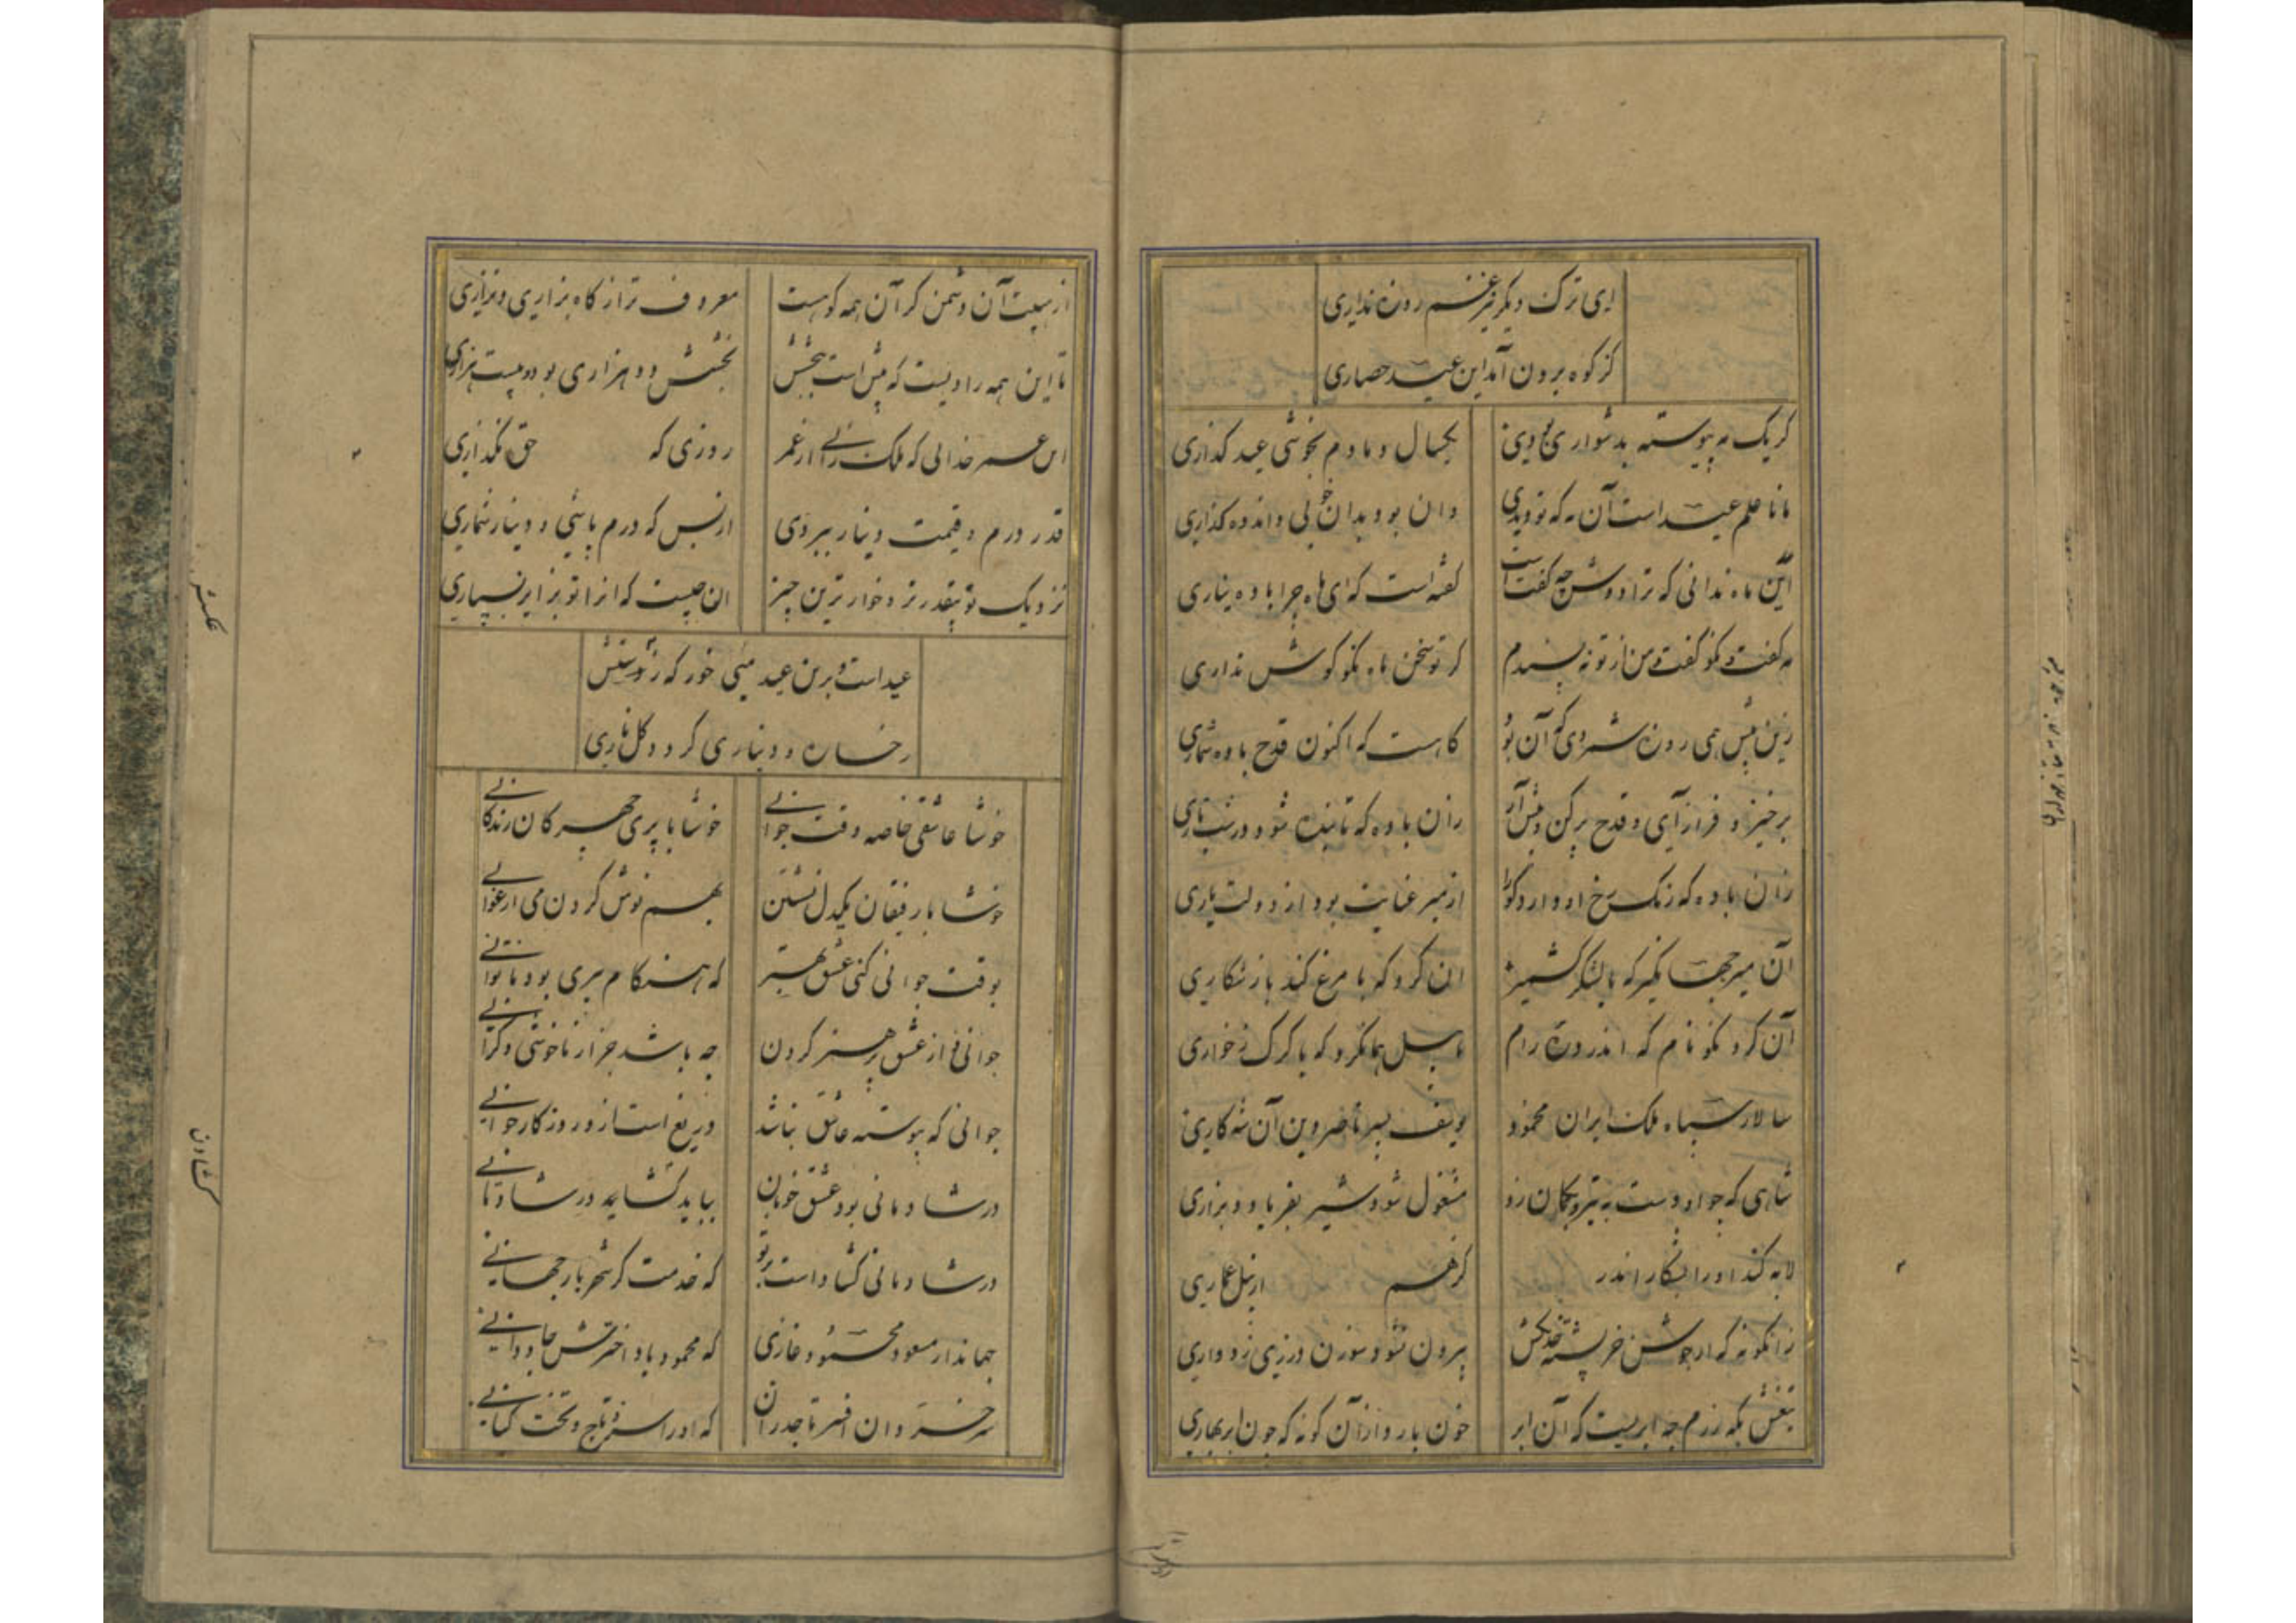 ای ترک دیگر غم روزه نداری
کز کوه برون آمد این عید حصاری
کر یک مه پیوسته بدشواری بودی
یکسال و مادم بخوشی عید کذاری
مانا علم عید است آن مه که تو دیدی
وان بود بدان خوبی واندوه کذاری
این ماه ندانی که ترا دوش چه کفت است
کفته است که ای ماه چرا باده نیاری
مه کفت و نکو کفت و من از تو نه پسندم
کر تو سخن ماه نکو کوش نداری
زین پیش همی روزه شمردی کو آن تو
کاهست که اکنون قدح باده شماری
برخیز و فراز آی و قدح پر کن و پیش آر
زان باده که تابنده شود در شب تاری
زان باده که رنک رخ او دارد
از میر عنایت بود از دولت یاری
آن میر جهانکیر که با لشکر کشمیر
ان کرد که با مرغ کند باز شکاری
آن کرد نکونام که اندر ره رام
با پیل همانکرد که با کرک ز خواری
سالار سپاه ملک ایران محمود
یوسف پسر ناصر دین آن شه کاری
شاهی که چو او دست به تیر و بکمان زد
مشغول شود شیر بفریاد و بزاری
لابه کند او را بشکار اندر
کرهم از پیل عماری
زانکونه که از جوشن خرپشته خدنکش
بیرون نشود سوزن درزی ز دواری
تیغش بکه رزم چه ابریست که آن ابر
خون بارد از آن کونه که چون ابر بهاری
از هیبت آن دشمن کز آن همه کوهست
معروف تر از کاه بزاری و نزاری
تا این همه رادیست که پیش است ببخشش
بخشش دو هزاری بود و بیست هزاری
این عمر خدائی که ملک را از عمر
روزی که حق نکذاری
قدر درم و قیمت دینار ببردی
از بس که درم پاشی و دینار شماری
نزدیک تو بیقدرتر و خوارترین چیز
ان چیست که انرا تو بزایر نسپاری
عید است و برین عید میی خور که ز
رخساره دیناری کردد کل ناری
خوشا عاشقی خاصه وقت جوانی
خوشا با پری چهرکان زندکانی
خوشا با رفیقان یکدل نشستن
بهم نوش کردن می ارغوانی
بوقت جوانی کنی عشق بهتر
که هنکام پیری بود ناتوانی
جوانی و از عشق پرهیز کردن
چه باشد جز از ناخوشی و کرانی
جوانی که پیوسته عاشق نباشد
دریغ است ازو روزکار جوانی
در شادمانی بود عشق خوبان
بباید کشاید در شادمانی
در شادمانی کشاد است بر تو
که خدمت کر شهریار جهانی
جهاندار مسعود محمود غازی
که محمود باد اخترش جاودانی
سر خسروان افسر تاجداران
که او را سزد تاج و تخت کیانی